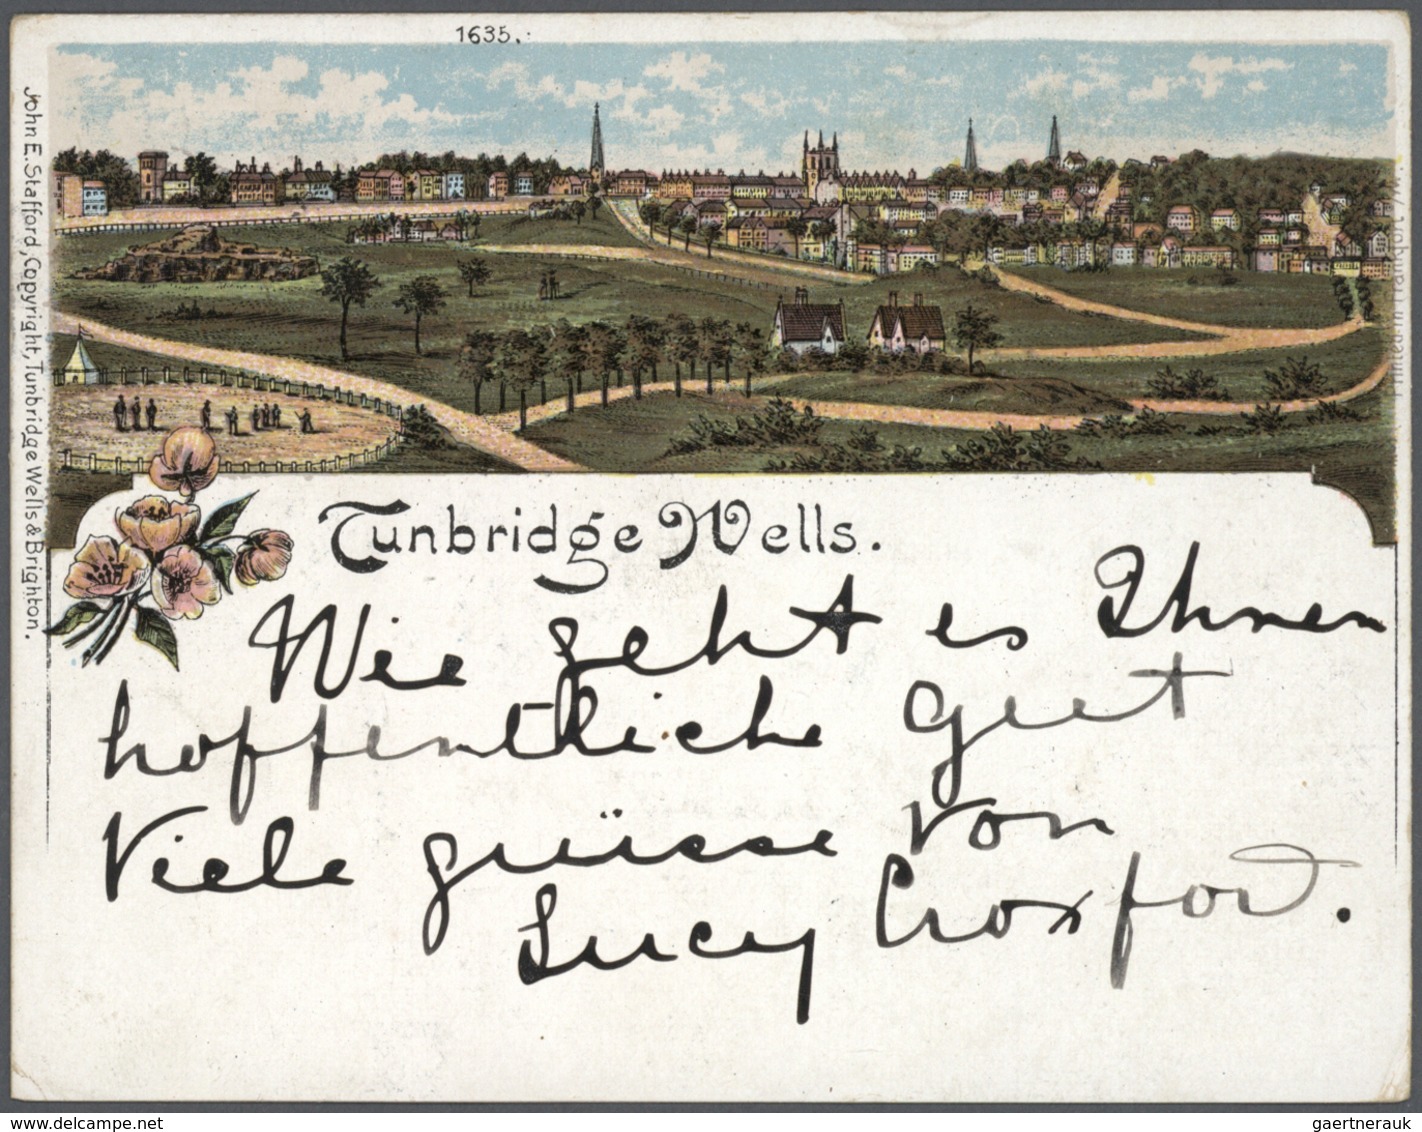 1635.
John E. Stafford, Copyright, Tunbridge Wells & Brighton.
Tunbridge Wells.
Wie geht es Ihnen
hoffentliche Guet
Viele grüsse von
Lucy Croxford.
www.delcampe.net
gaertnerauk